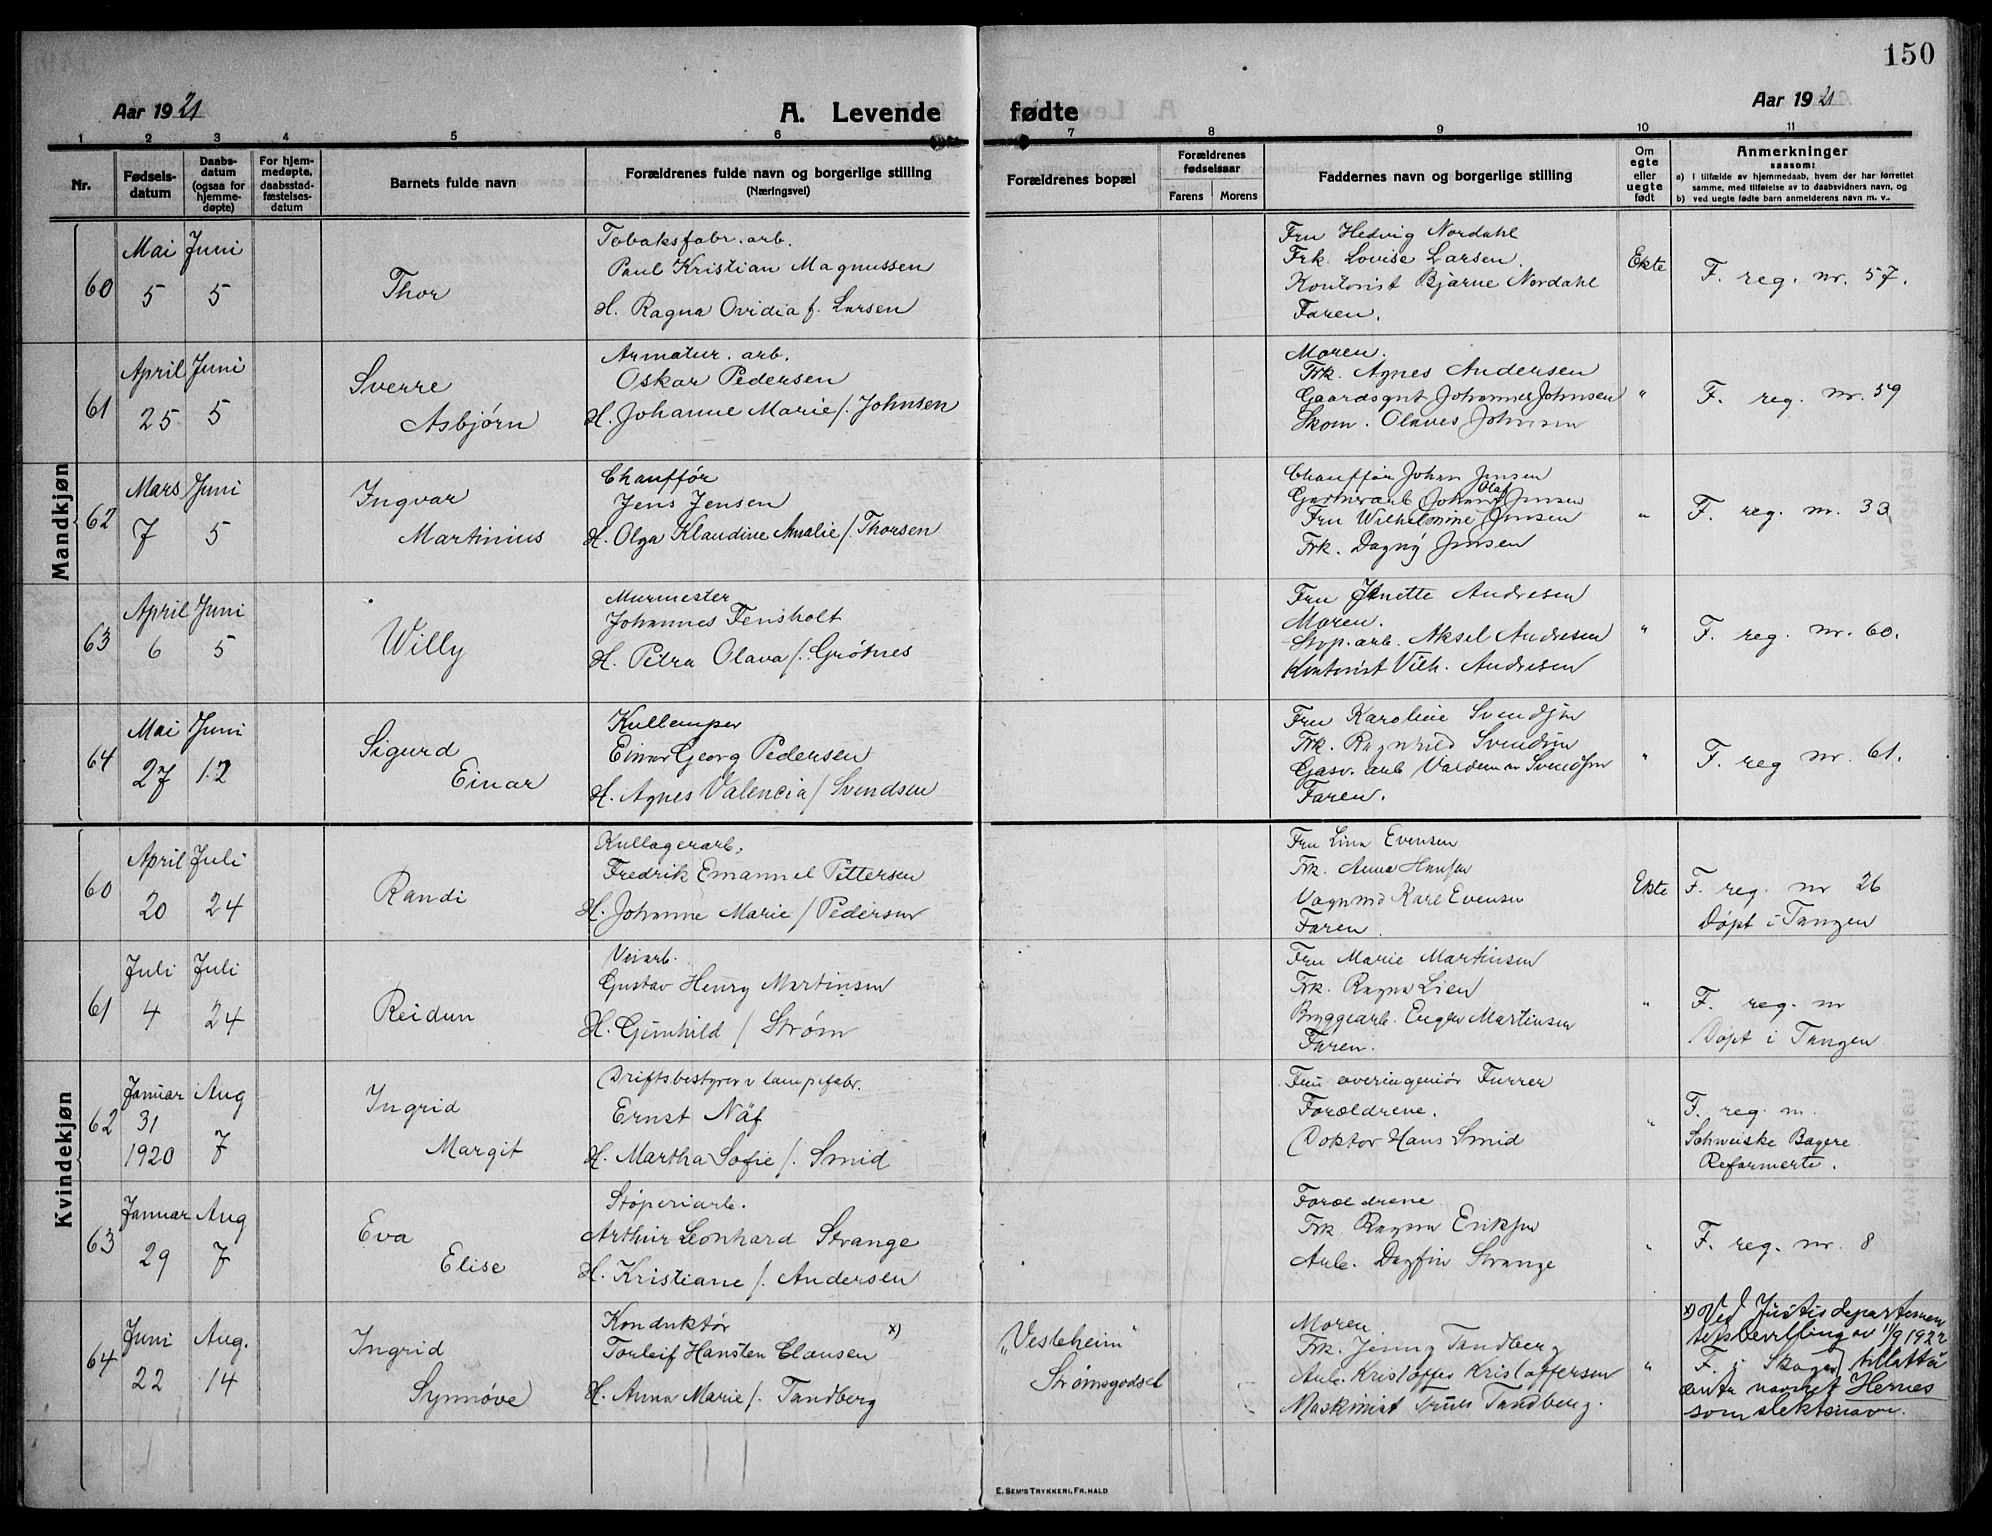 150
Aar 1921 A. Levende fødte Aar 1921
1 2 3 4 5 6 7 8 9 10 11
Nr. Fødselsdatum Daabsdatum (ogsaa for hjemmedøpte) For hjemmedøpte, daabsstadfæstelsesdatum Barnets fulde navn Forældrenes fulde navn og borgerlige stilling (Næringsvei) Forældrenes bopæl Forældrenes fødselsaar Farens Morens Faddernes navn og borgerlige stilling Om egte eller uegte født Anmerkninger saasom:
a) I tilfælde av hjemmedaab, hvem der har forrettet samme, med tilføielse av to daabsvidners navn, og
b) ved uegte fødte barn anmelderens navn m. v..
Mandkjøn
60 Mai 5 Juni 5 Thor
Tobaksfabr. arb.
Paul Kristian Magnussen
H. Ragna Ovidia f. Larsen
Fru Hedvig Nordahl
Frk. Lovise Larsen
Kontorist Bjarne Nordahl
Faren.
Ekte F. reg. nr. 57.
61 April 25 Juni 5 Sverre Asbjørn
Armatur. arb.
Oskar Pedersen
H. Johanne Marie f. Johnsen
Moren.
Frk. Agnes Andersen
Gaardsgut Johannes Johnsen
Skom. Olaves Johnsen
" F. reg. nr. 59
62 Mars 7 Juni 5 Ingvar Martinius
Chauffør
Jens Jensen
H. Olga Klaudine Amalie f. Thorsen
Chauffør Johan Jensen
Gartnerarb Johan Olaf Jensen
Fru Wilhelmine Jensen
Frk. Dagny Jensen
" F. reg. nr. 33
63 April 6 Juni 5 Willy
Murmester
Johannes Fensholt
H. Petra Olava f. Grøtnes
Fru Janette Andresen
Moren.
Støp. arb. Aksel Andresen
Kontorist Vilh. Andresen
" F. reg. nr. 60.
64 Mai 27 Juni 12 Sigurd Einar
Kullemper
Einar Georg Pedersen
H. Agnes Valencia f Svendsen
Fru Karoline Svendsen
Frk. Ragnhild Svendsen
Gasv. arb Valdemar Svendsen
Faren.
" F. reg nr. 61.
Kvindekjøn
60 April 20 Juli 24 Randi
Kullagerarb.
Fredrik Emanuel Pettersen
H. Johanne Marie f Pedersen
Fru Lina Evensen
Frk. Anna Hansen
Vognmd Karl Evensen
Faren
Ekte F. reg. nr 26
Døpt i Tangen
61 Juli 4 Juli 24 Reidun
Veiarb.
Gustav Henry Martinsen
H. Gunhild f Strøm
Fru Marie Martinsen
Frk. Ragna Lien
Bryggearb. Eugen Martinsen
Faren.
" F. reg. nr
Døpt i Tangen
62 Januar 31 1920 Aug 7 Ingrid Margit
Driftsbestyrer v lampefabr.
Ernst Näf
H. Martha Sofie f. Smid
Fru overingeniør Furrer
Forældrene.
Doktor Hans Smid
" F. reg. nr.
Schweiske Bagere
Reformerte.
63 Januar 29 Aug 7 Eva Elise
Støperiarb.
Arthur Leonhard Strange
H. Kristiane f. Andersen
Forældrene
Frk Ragna Eriksen
Arb. Dagfin Strange
" F. reg. nr. 8
64 Juni 22 Aug. 14 Ingrid Synnøve
Konduktør x)
Torleif Hansten Clausen
H. Anna Marie f. Tandberg
"Vesleheim"
Strømsgodset
Moren
Frk. Jenny Tandberg
Arb. Kristoffer Kristoffersen
Maskinist Truls Tandberg.
"
x) Ved Justisdepartemen
tetsbevilling av 11/9 1922
F. i Skoger tillatt å
anta navnet Hernes
som slektsnavn.
E. Sem's Trykkeri, Fr. Hald